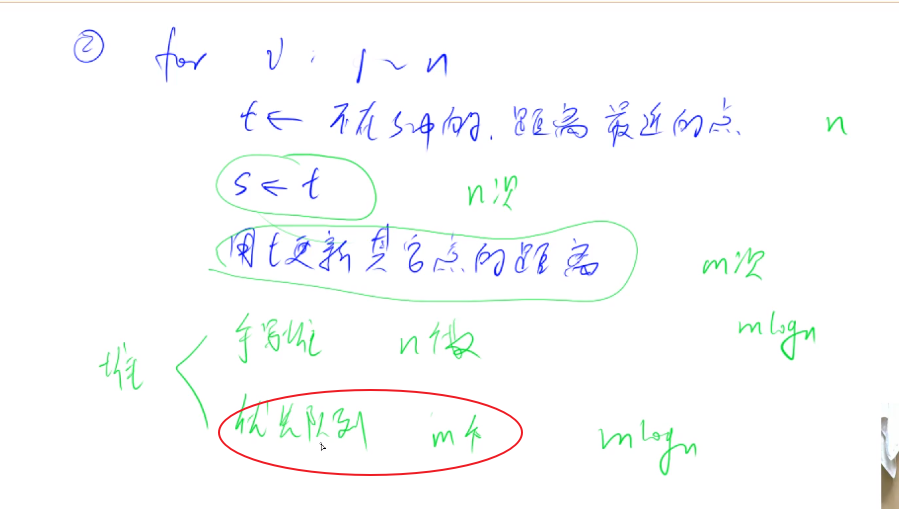 ② for v: 1~n
t ← 不在s中的, 距离最近的点. n
s ← t n次
用t更新其它点的距离 m次
手写堆 n个数 mlogn
堆
优先队列 m个 mlogn